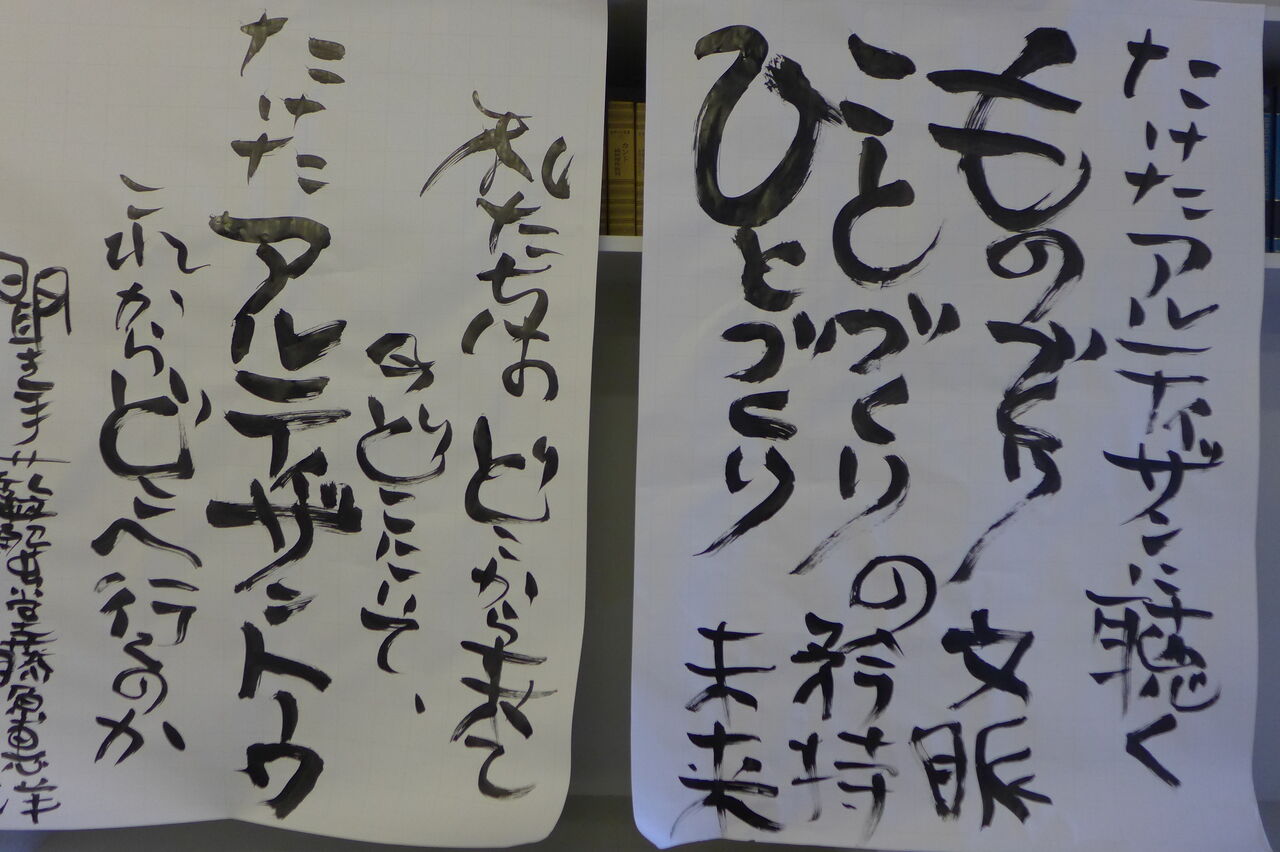 たけたアルティザンに聴く
ものづくり 文脈
ことづくりの矜持
ひとづくり 未来
私たちは どこから来て
今どこにいて、
たけたアルティザントーク
これからどこへ行くのか
聞き手